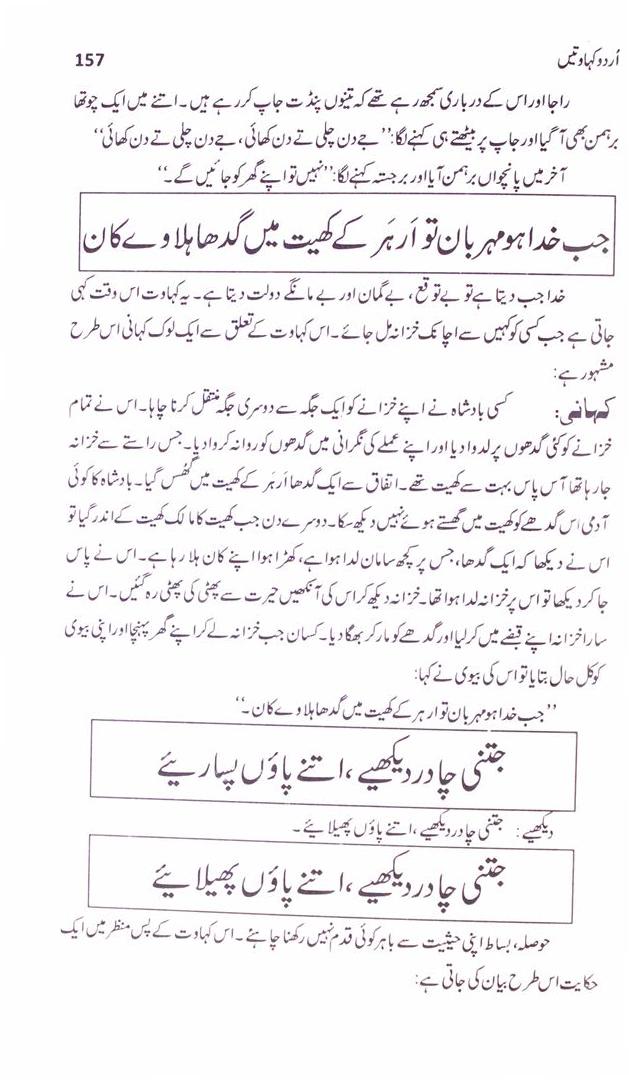 اُردو کہاوتیں 157
راجا اور اس کے درباری سمجھ رہے تھے کہ تینوں پنڈت جاپ کر رہے ہیں۔ اتنے میں ایک چوتھا
برہمن بھی آ گیا اور جاپ پر بیٹھتے ہی کہنے لگا: ’’جے دن چلی تے دن کھائی، جے دن چلی تے دن کھائی‘‘
آخر میں پانچواں برہمن آیا اور برجستہ کہنے لگا: ’’نہیں تو اپنے گھر کو جائیں گے۔‘‘
جب خدا ہو مہربان تو اَرہَر کے کھیت میں گدھا ہلاوے کان
خدا جب دیتا ہے تو بے توقع، بے گمان اور بے مانگے دولت دیتا ہے۔ یہ کہاوت اس وقت کہی
جاتی ہے جب کسی کو کہیں سے اچانک خزانہ مل جائے۔ اس کہاوت کے تعلق سے ایک لوک کہانی اس طرح
مشہور ہے:
کہانی: کسی بادشاہ نے اپنے خزانے کو ایک جگہ سے دوسری جگہ منتقل کرنا چاہا۔ اس نے تمام
خزانے کو کئی گدھوں پر لدوا دیا اور اپنے عملے کی نگرانی میں گدھوں کو روانہ کروا دیا۔ جس راستے سے خزانہ
جا رہا تھا آس پاس بہت سے کھیت تھے۔ اتفاق سے ایک گدھا اَرہَر کے کھیت میں گھُس گیا۔ بادشاہ کا کوئی
آدمی اس گدھے کو کھیت میں گھستے ہوئے نہیں دیکھ سکا۔ دوسرے دن جب کھیت کا مالک کھیت کے اندر گیا تو
اس نے دیکھا کہ ایک گدھا، جس پر کچھ سامان لدا ہوا ہے، کھڑا ہوا اپنے کان ہلا رہا ہے۔ اس نے پاس
جا کر دیکھا تو اس پر خزانہ لدا ہوا تھا۔ خزانہ دیکھ کر اس کی آنکھیں حیرت سے پھٹی کی پھٹی رہ گئیں۔ اس نے
سارا خزانہ اپنے قبضے میں کر لیا اور گدھے کو مار کر بھگا دیا۔ کسان جب خزانہ لے کر اپنے گھر پہنچا اور اپنی بیوی
کو کل حال بتایا تو اس کی بیوی نے کہا:
’’جب خدا ہو مہربان تو ارہر کے کھیت میں گدھا ہلاوے کان۔‘‘
جتنی چادر دیکھیے، اتنے پاؤں پساریئے
دیکھیے: جتنی چادر دیکھیے، اتنے پاؤں پھیلائیے۔
جتنی چادر دیکھیے، اتنے پاؤں پھیلائیے
حوصلہ، بساط اپنی حیثیت سے باہر کوئی قدم نہیں رکھنا چاہئے۔ اس کہاوت کے پس منظر میں ایک
حکایت اس طرح بیان کی جاتی ہے: